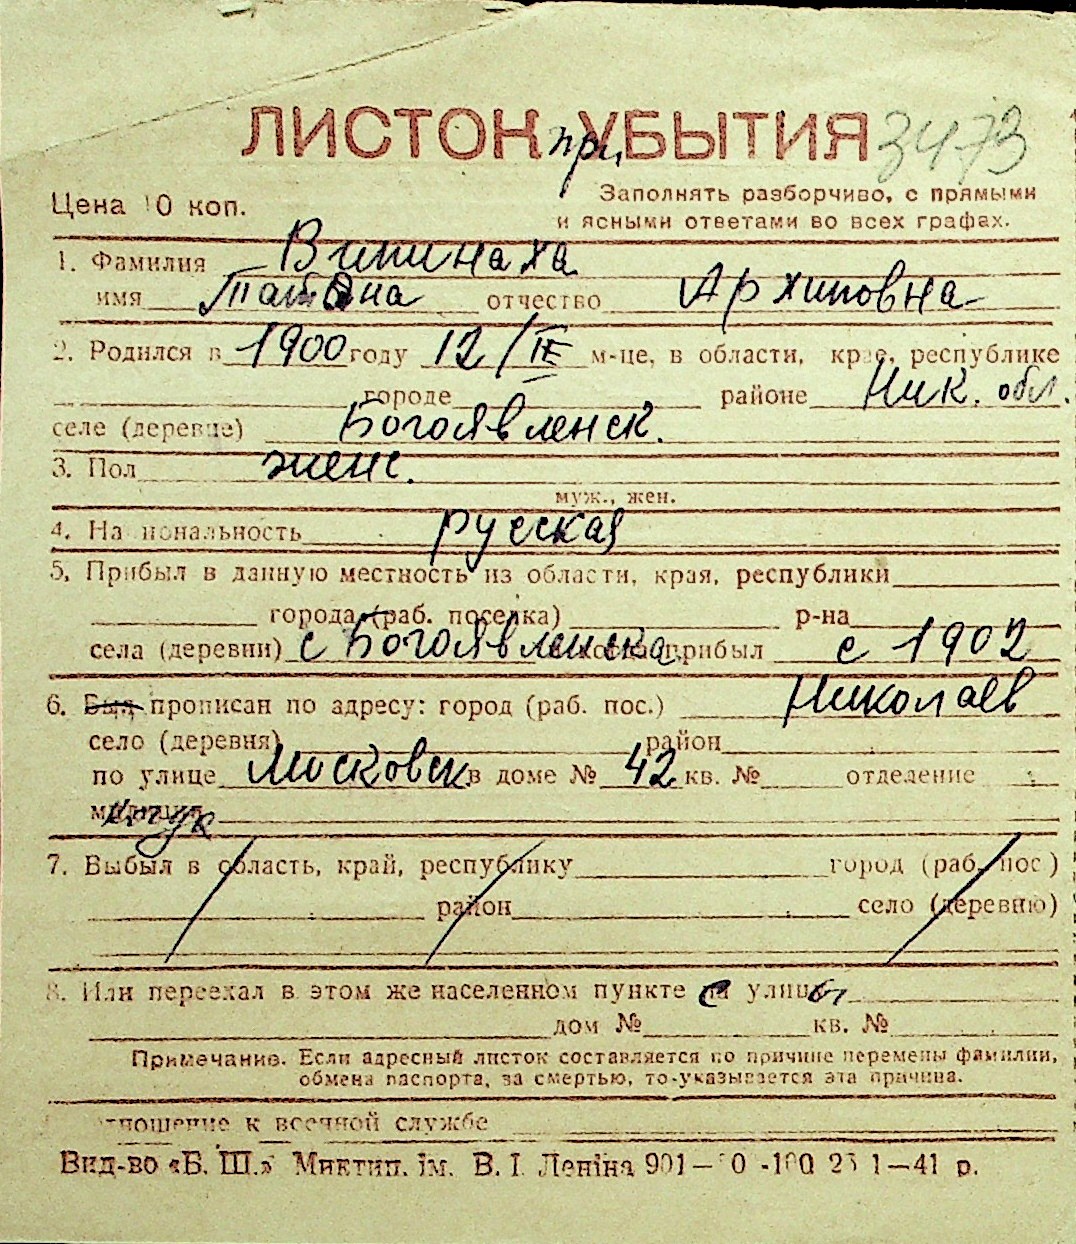 ЛИСТОК при УБЫТИЯ 3473
Цена 10 коп.
Заполнять разборчиво, с прямыми
и ясными ответами во всех графах.
1. Фамилия Випинаха
имя Татьяна отчество Архиповна
2. Родился в 1900 году 12/IX м-це, в области, крае, республике
городе районе Ник. обл.
селе (деревне) Богоявленск.
3. Пол женс.
муж., жен.
4. Национальность русская
5. Прибыл в данную местность из области, края, республики
города (раб. поселка) р-на
села (деревни) с Богоявленска прибыл с 1902
6. Был прописан по адресу: город (раб. пос.) Николаев
село (деревня) район
по улице Московск в доме № 42 кв. № отделение
милиции
7. Выбыл в область, край, республику город (раб. пос)
район село (деревню)
8. Или переехал в этом же населенном пункте с улицы
дом № кв. №
Примечание. Если адресный листок составляется по причине перемены фамилии,
обмена паспорта, за смертью, то-указывается эта причина.
тношение к военной службе
Вид-во «Б. Ш.» Миктип. ім. В. І. Леніна 901— 0 -100 23 1—41 р.